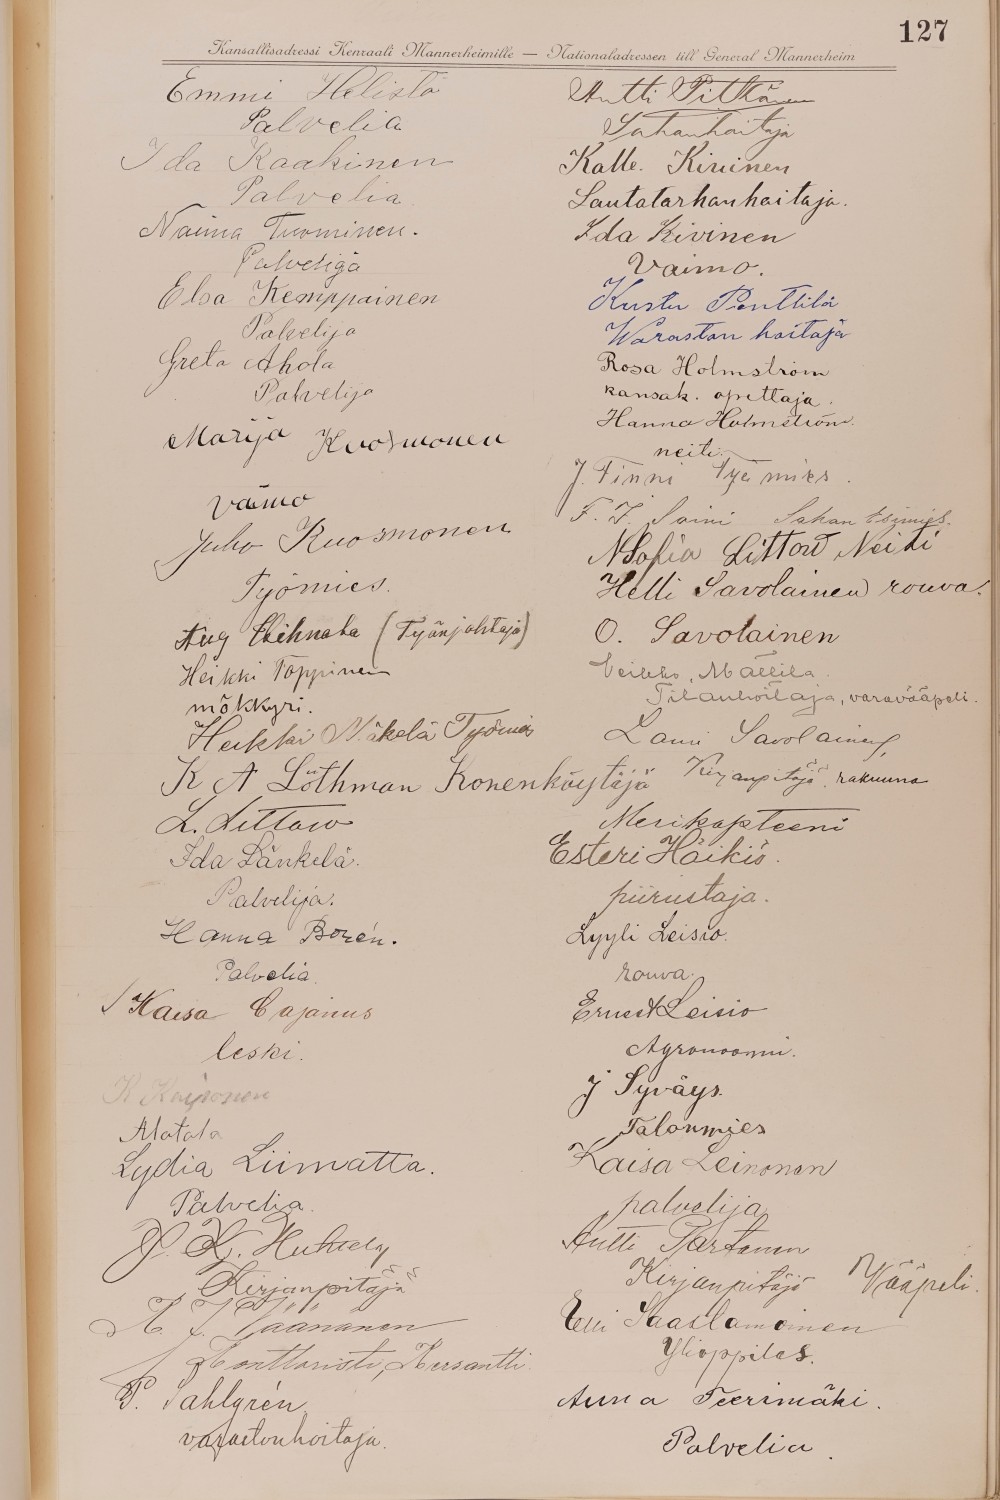 127
Kansallisadressi Kenraali Mannerheimille — Nationaladressen till General Mannerheim
Emmi Helistö
Palvelia
Ida Kaakinen
Palvelia
Naima Tuominen.
Palveligä
Elsa Kemppainen
Palvelija
Greta Ahola
Palvelija
Marija Kuosmonen
vaimo
Juho Kuosmonen
Työmies.
Aug (Työnjohtaja)
Heikki Toppinen
mökkyri.
Heikki Mäkelä Työmies
K A Löthman Konenkäyttäjä
L. Littow
Ida Länkelä.
Palvelija.
Hanna Borén.
Palvelia.
Kaisa Cajanus
leski.
K
Matala
Lydia Liimatta.
Palvelia.
Kirjanpitäjä
Väänänen
Konttoristi, Kersantti.
P. Sahlgrén
varastonhoitaja.
Antti Pitkänen
Sahanhoitaja
Kalle. Kivinen
Lautatarhanhoitaja.
Ida Kivinen
Vaimo.
Kustu Penttilä
Waraston hoitaja
Rosa Holmström
kansak. opettaja.
Hanna Holmström.
neiti.
J. Finni Työmies.
F. J. Soini
N Sofia Littow Neiti
Helli Savolainen rouva.
O. Savolainen
Veikko, Mattila.
Tilanhoitaja, varavääpeli.
Lauri Savolainen,
Kirjanpitäjä, rakuuna
Merikapteeni
Esteri Häikiö.
piirustaja.
Lyyli Leisio.
rouva.
Ernest Leisio
Agronoomi.
J Syväys.
Talonmies
Kaisa Leinonen
palvelija
Antti Partanen
Kirjanpitäjä Vääpeli.
Elli Saastamoinen
Ylioppilas.
Anna Teerimäki.
Palvelia.